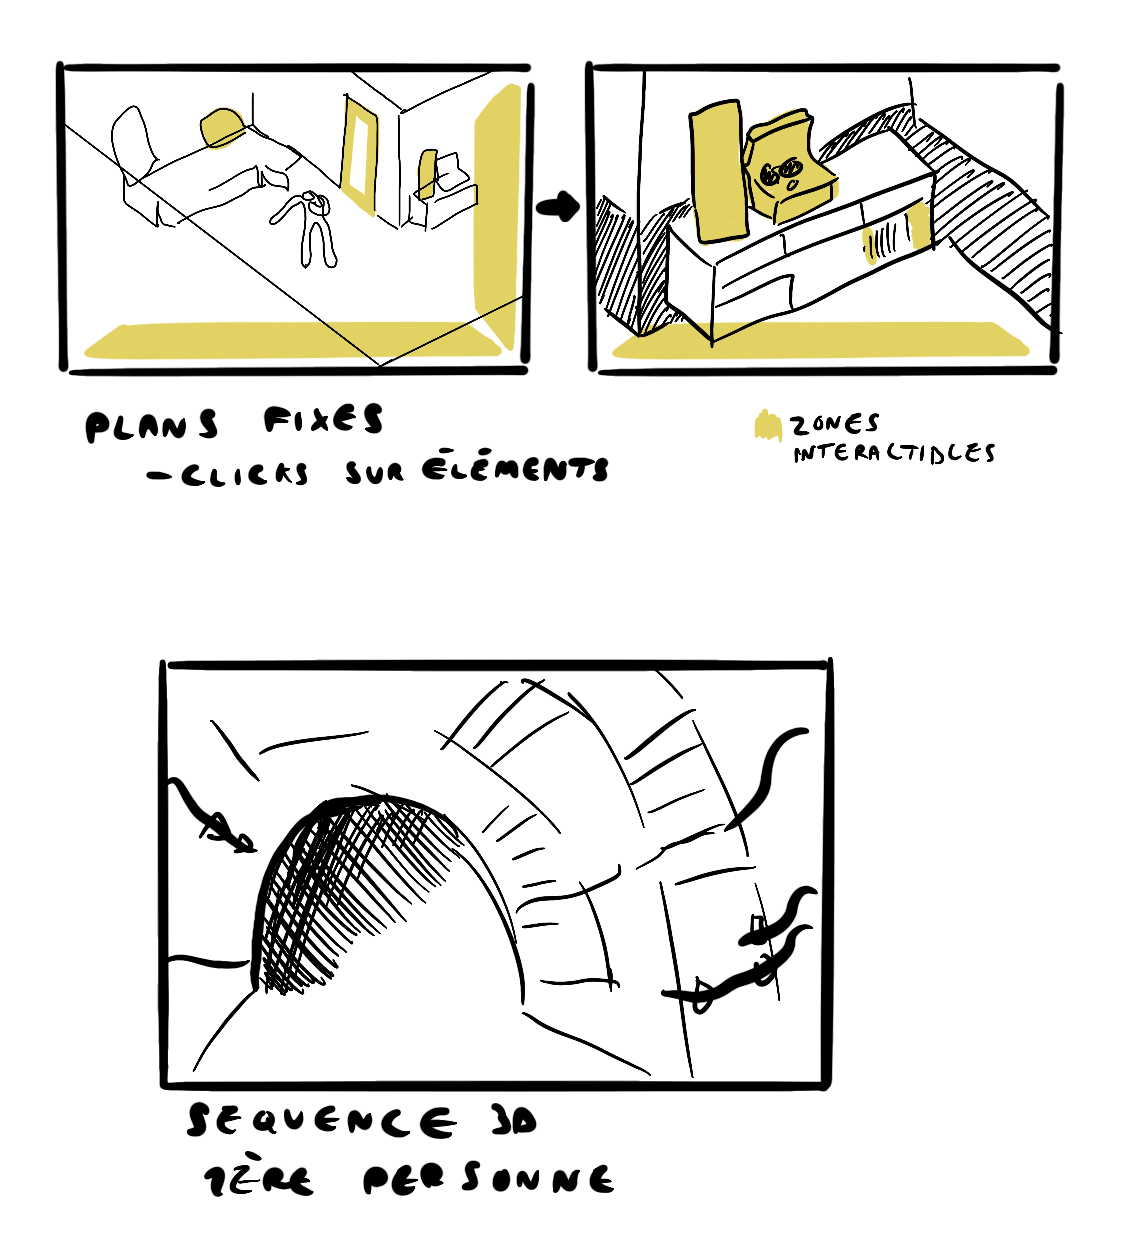 PLANS FIXES
- CLICKS SUR ÉLÉMENTS
ZONES
INTERACTIBLES
SEQUENCE 3D
1ÈRE PERSONNE